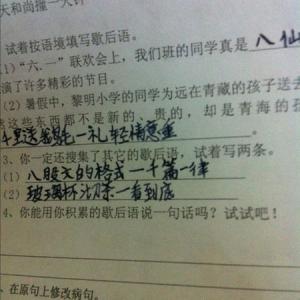 天和尚撞一天钟
试着按语境填写歇后语。
(1)“六.一”联欢会上，我们班的同学真是八仙
演了许多精彩的节目。
(2)暑假中，黎明小学的同学为远在青藏的孩子送去
这些东西都不是新的、贵的，却是青海的孩
里送鹅毛—礼轻情意重。
3、你一定还搜集了其它的歇后语，试着写两条。
(1)八股文的格式—千篇一律
(2)玻璃杯沏茶—看到底
4、你能用你积累的歇后语说一句话吗？试试吧！
、在原句上修改病句。